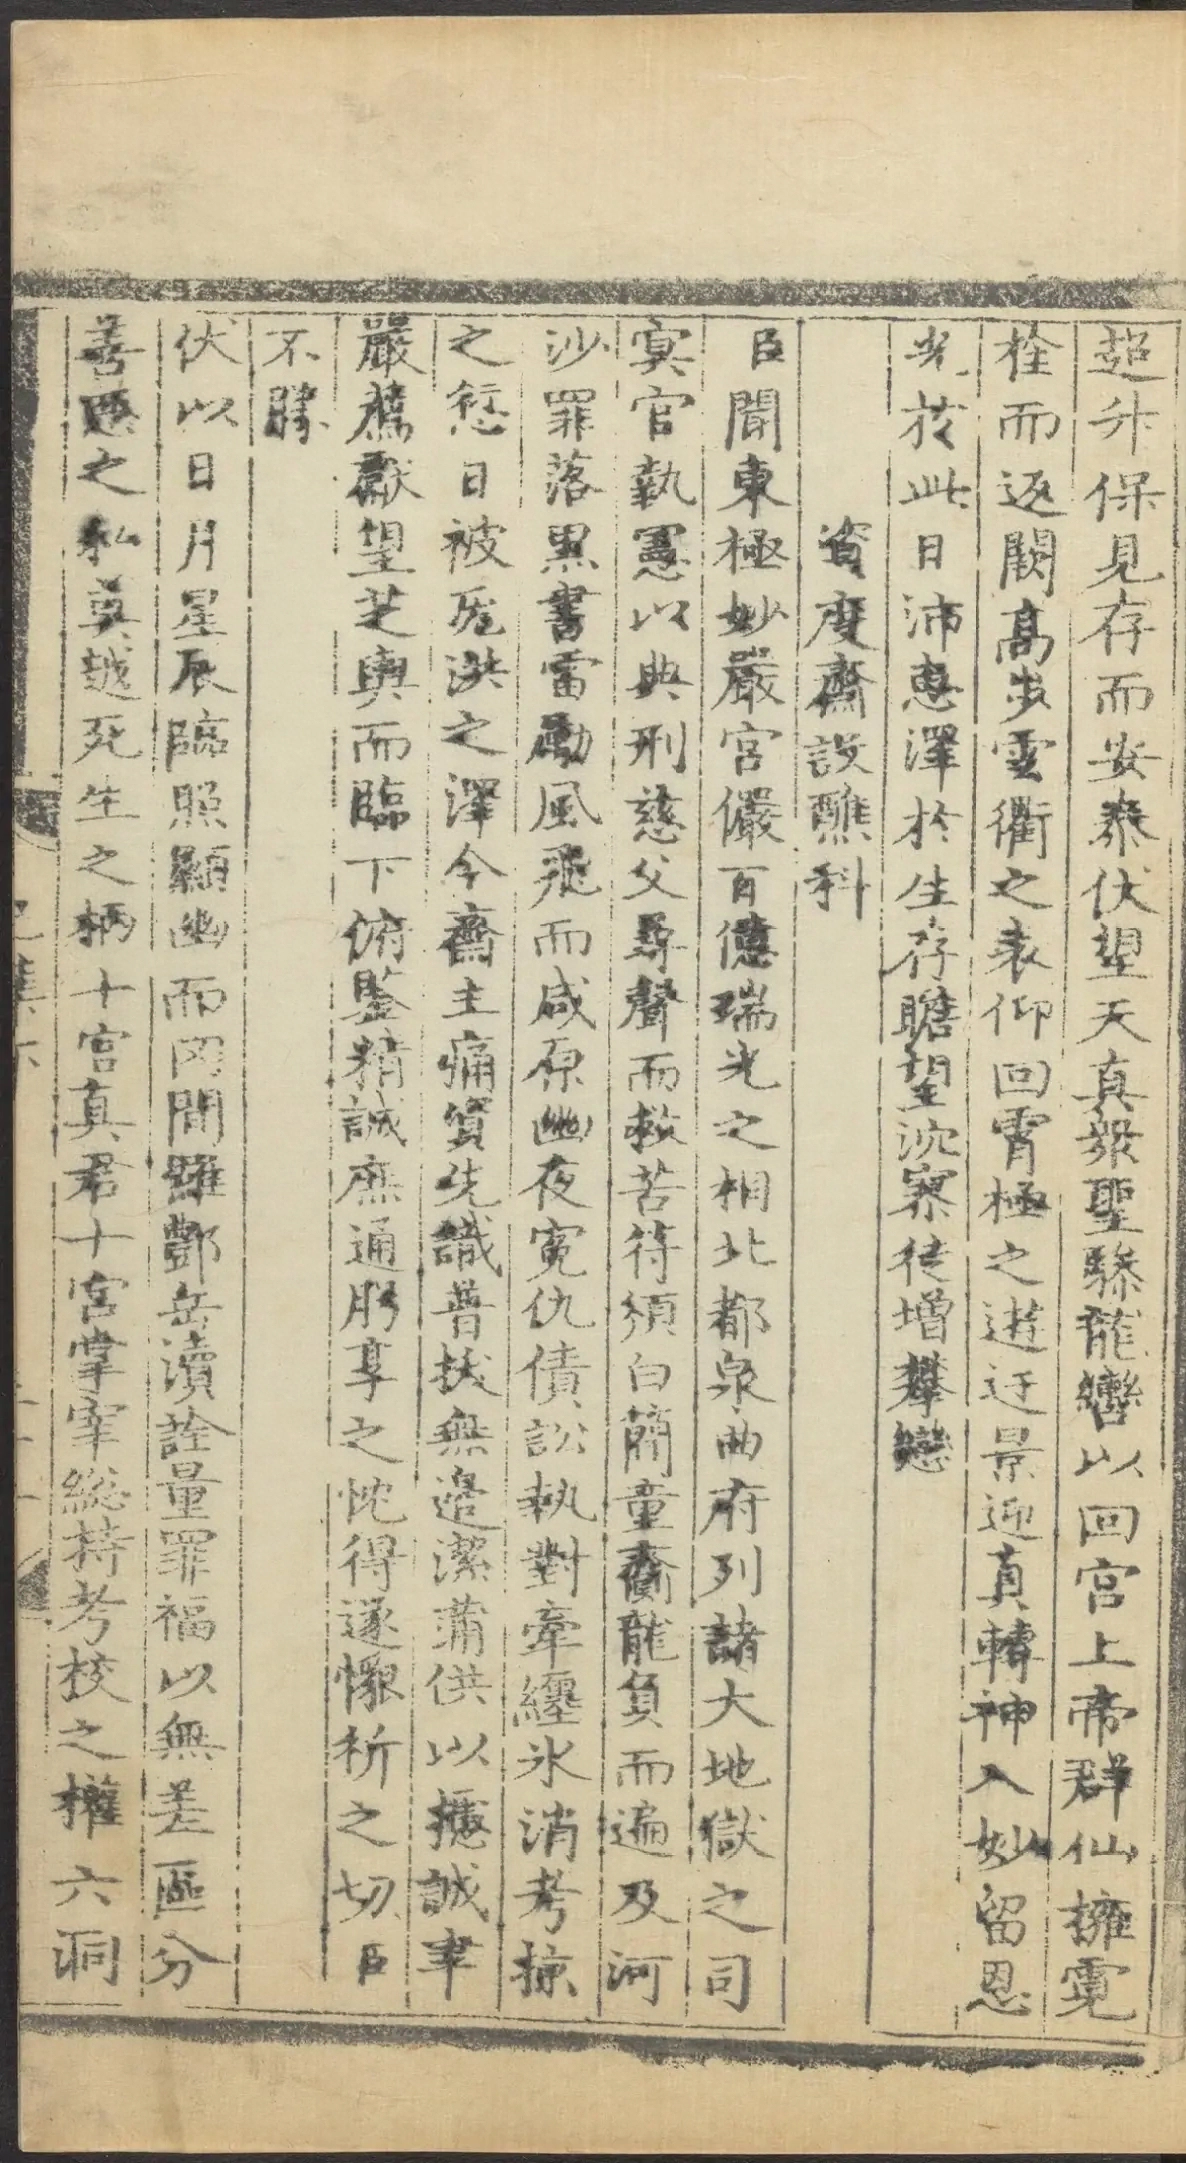 超升保見存而安泰伏望天真衆聖驂龍轡以回宮上帝群仙擁霓
栓而返闕高步雲衢之表仰回霄極之遊迓景迎真轉神入妙留恩
光於此日沛惠澤於生存瞻望沈寥徒增攀戀
資度齋設醮科
臣聞東極妙嚴宮儼百億瑞光之相北都泉曲府列諸大地獄之司
冥官執憲以典刑慈父尋聲而救苦符須白簡童齎龍負而遍及河
沙罪落黑書雷動風飛而咸原幽夜寃仇債訟執對牽纏氷消考掠
之愆日被厖洪之澤今齋主痛資先識普拔無邊潔蒲供以攄誠聿
嚴薦獻望芝輿而臨下俯鑒精誠庶通肹享之忱得遂懷祈之切臣
不勝
伏以日月星辰臨照顯幽而罔間羅酆岳瀆詮量罪福以無差區分
善惡之私莫越死生之柄十宮真君十宮掌宰総持考校之權六洞